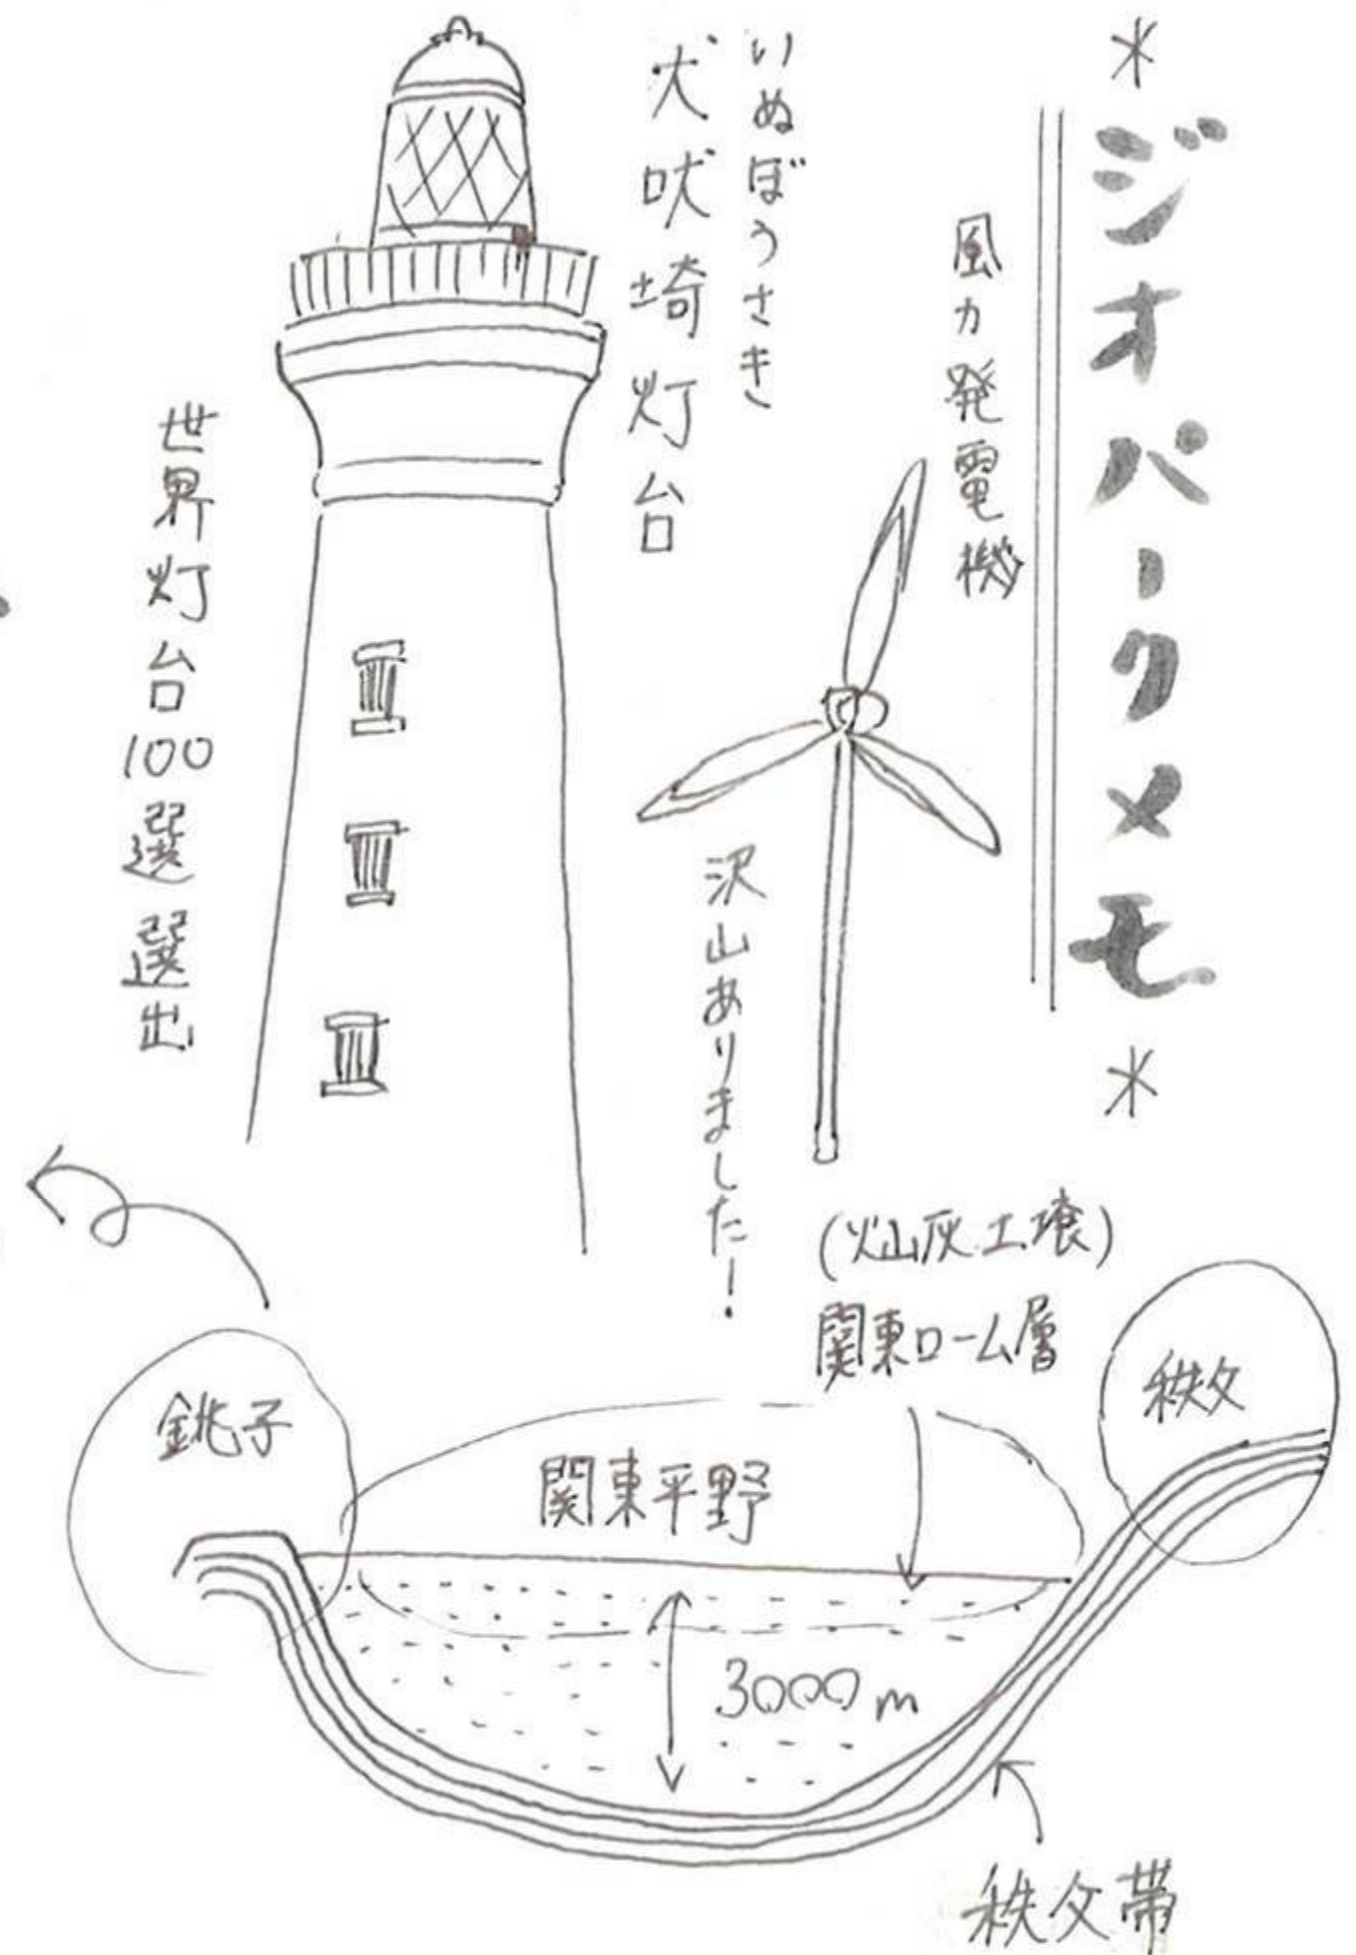 *ジオパークメモ*
風力発電機
沢山ありました!
いぬぼうさき
犬吠埼灯台
世界灯台100選選出
(火山灰土壌)
関東ローム層
秩父
銚子
関東平野
3000m
秩父帯